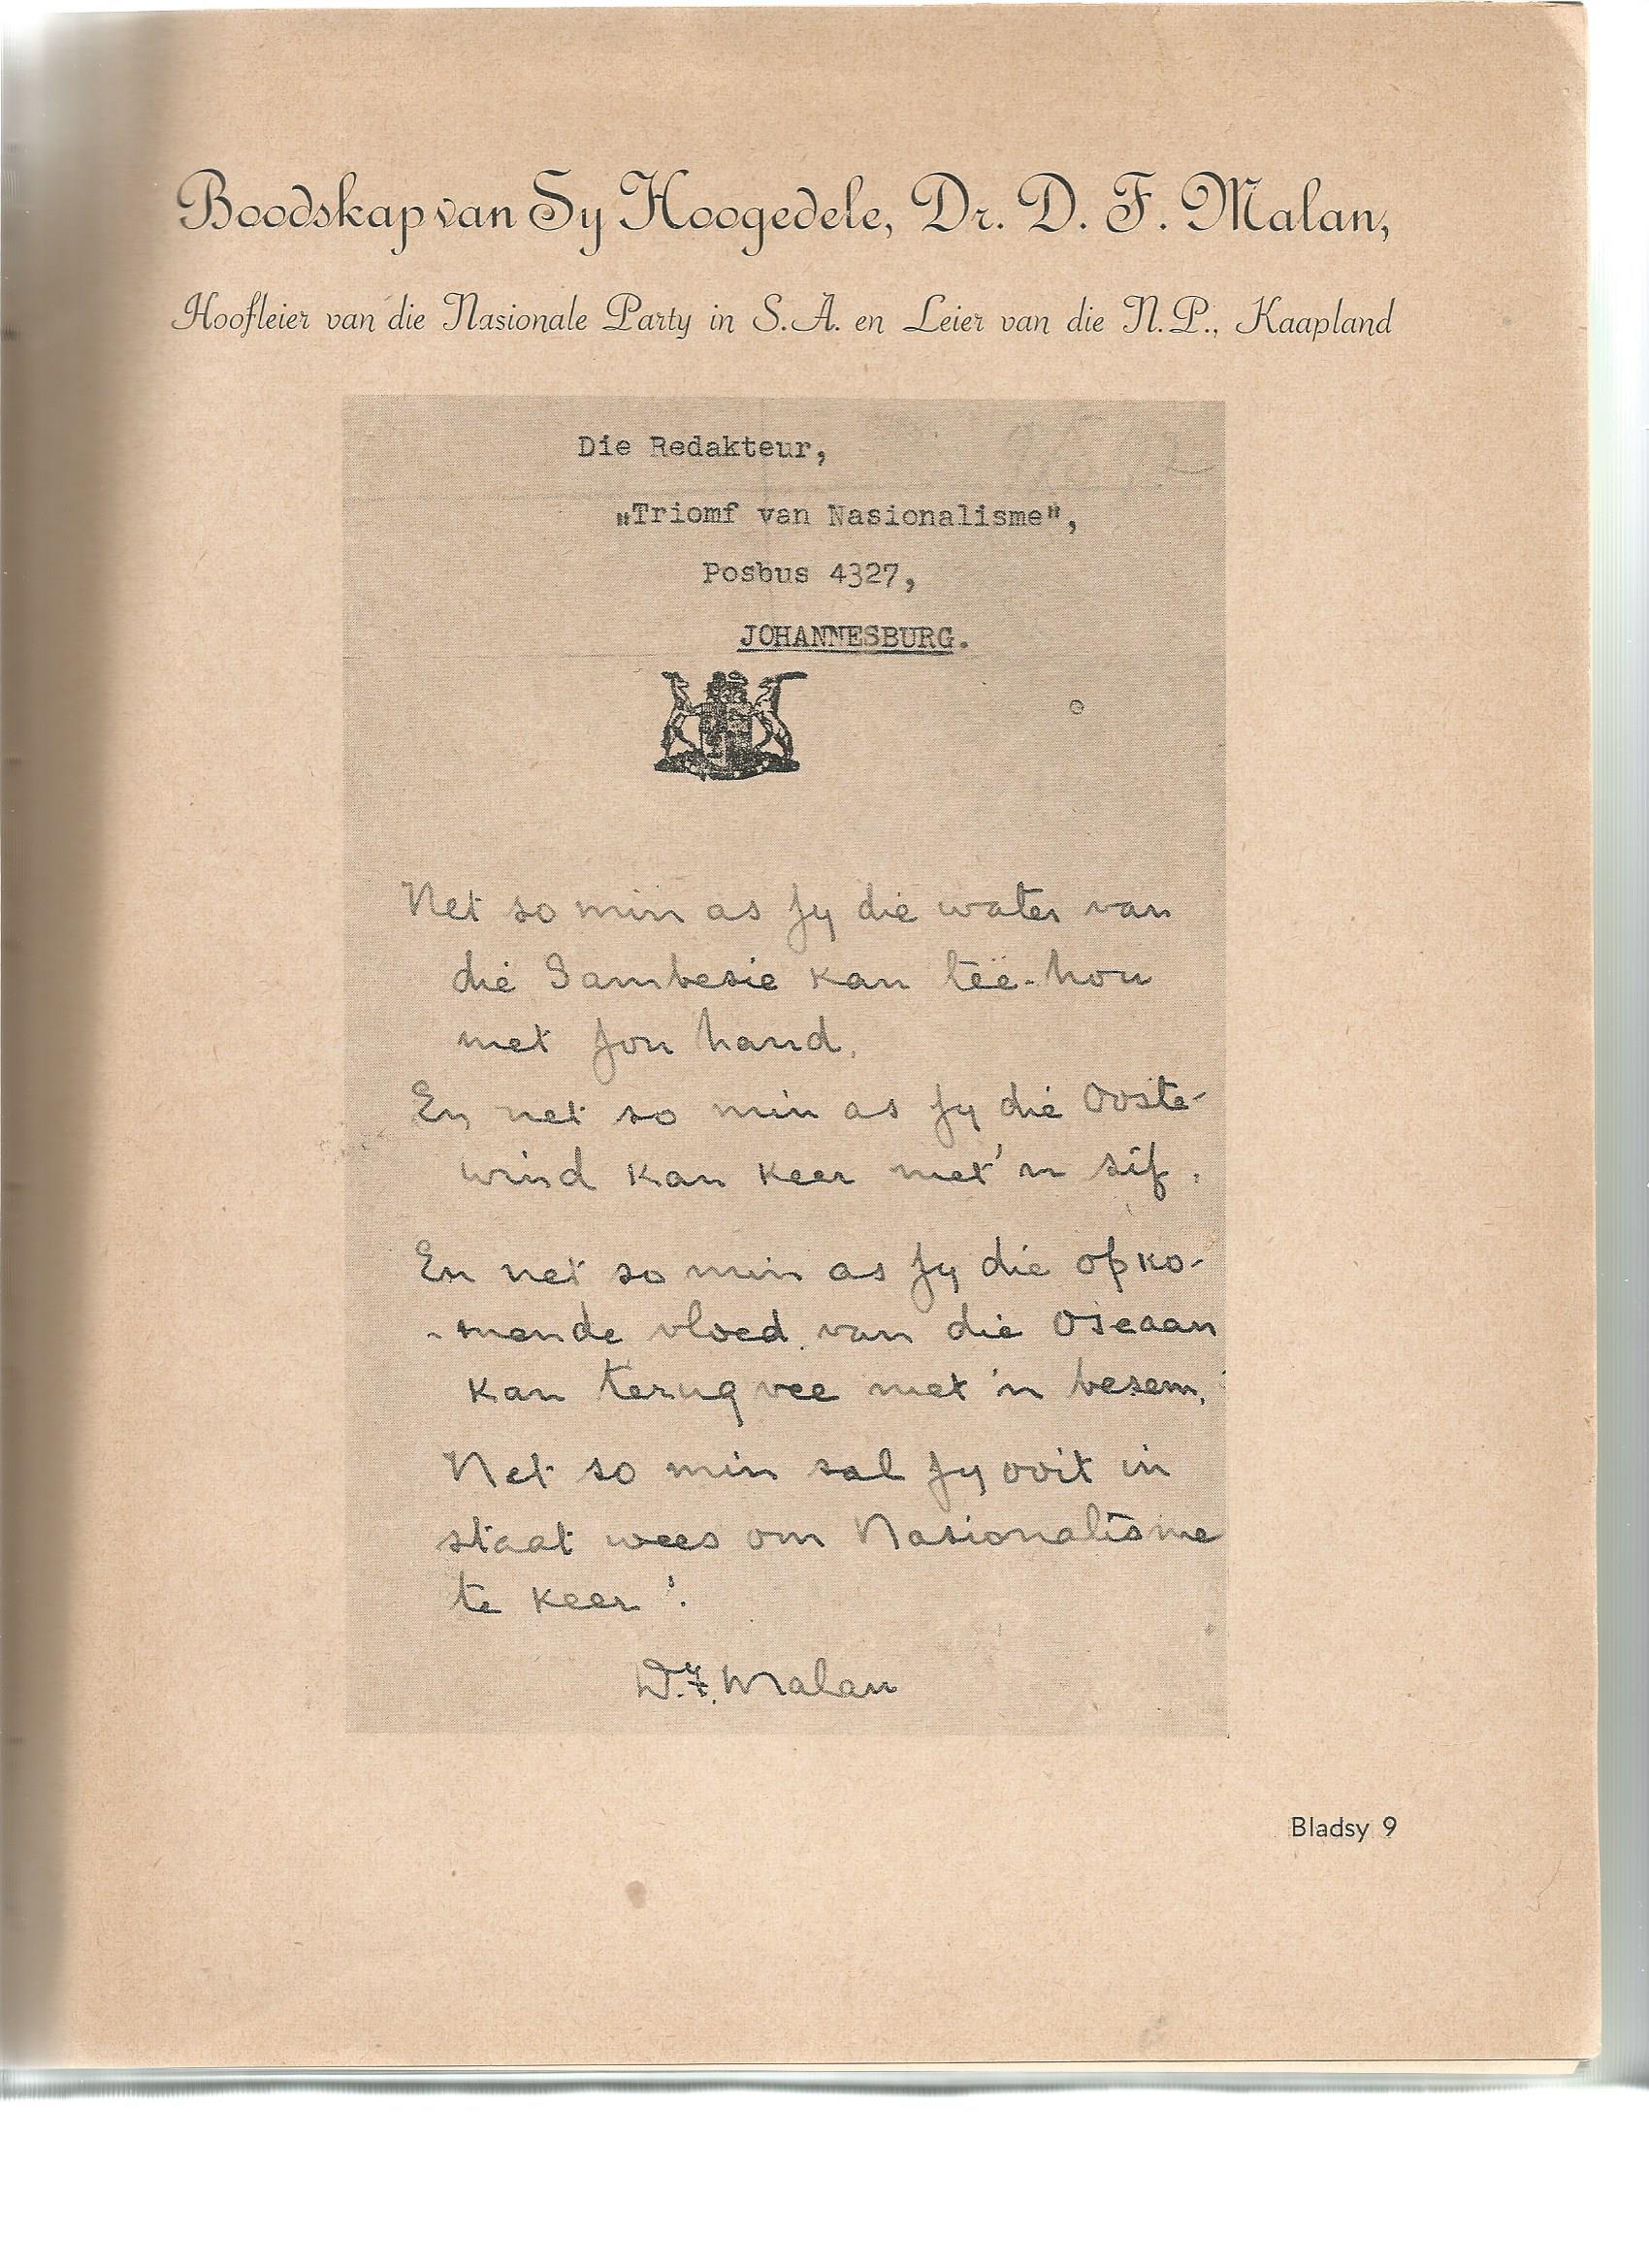 Boodskap van Sy Hoogedele, Dr. D. F. Malan,
Hoofleier van die Nasionale Party in S.A. en Leier van die N.P., Kaapland
Die Redakteur,
„Triomf van Nasionalisme",
Posbus 4327,
JOHANNESBURG.
Net so min as jy die water van
die Sambesie kan teë-hou
met jou hand,
En net so min as jy die Ooste-
wind kan keer met 'n sif,
En net so min as jy die opko-
-mende vloed van die Oseaan
kan terugvee met 'n besem,
Net so min sal jy ooit in
staat wees om Nasionalisme
te keer!
D. F. Malan
Bladsy 9